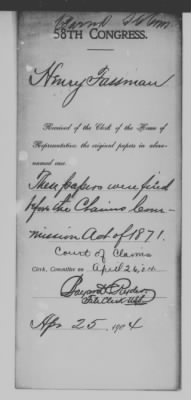 58TH CONGRESS.
Henry Fassman
Received of the Clerk of the House of
Representatives the original papers in above-
named case.
These papers were filed
before the Claims Com-
mission Act of 1871.
Court of Claims
Clerk, Committee on April 26, 04
File Clerk
Apr 25, 1904